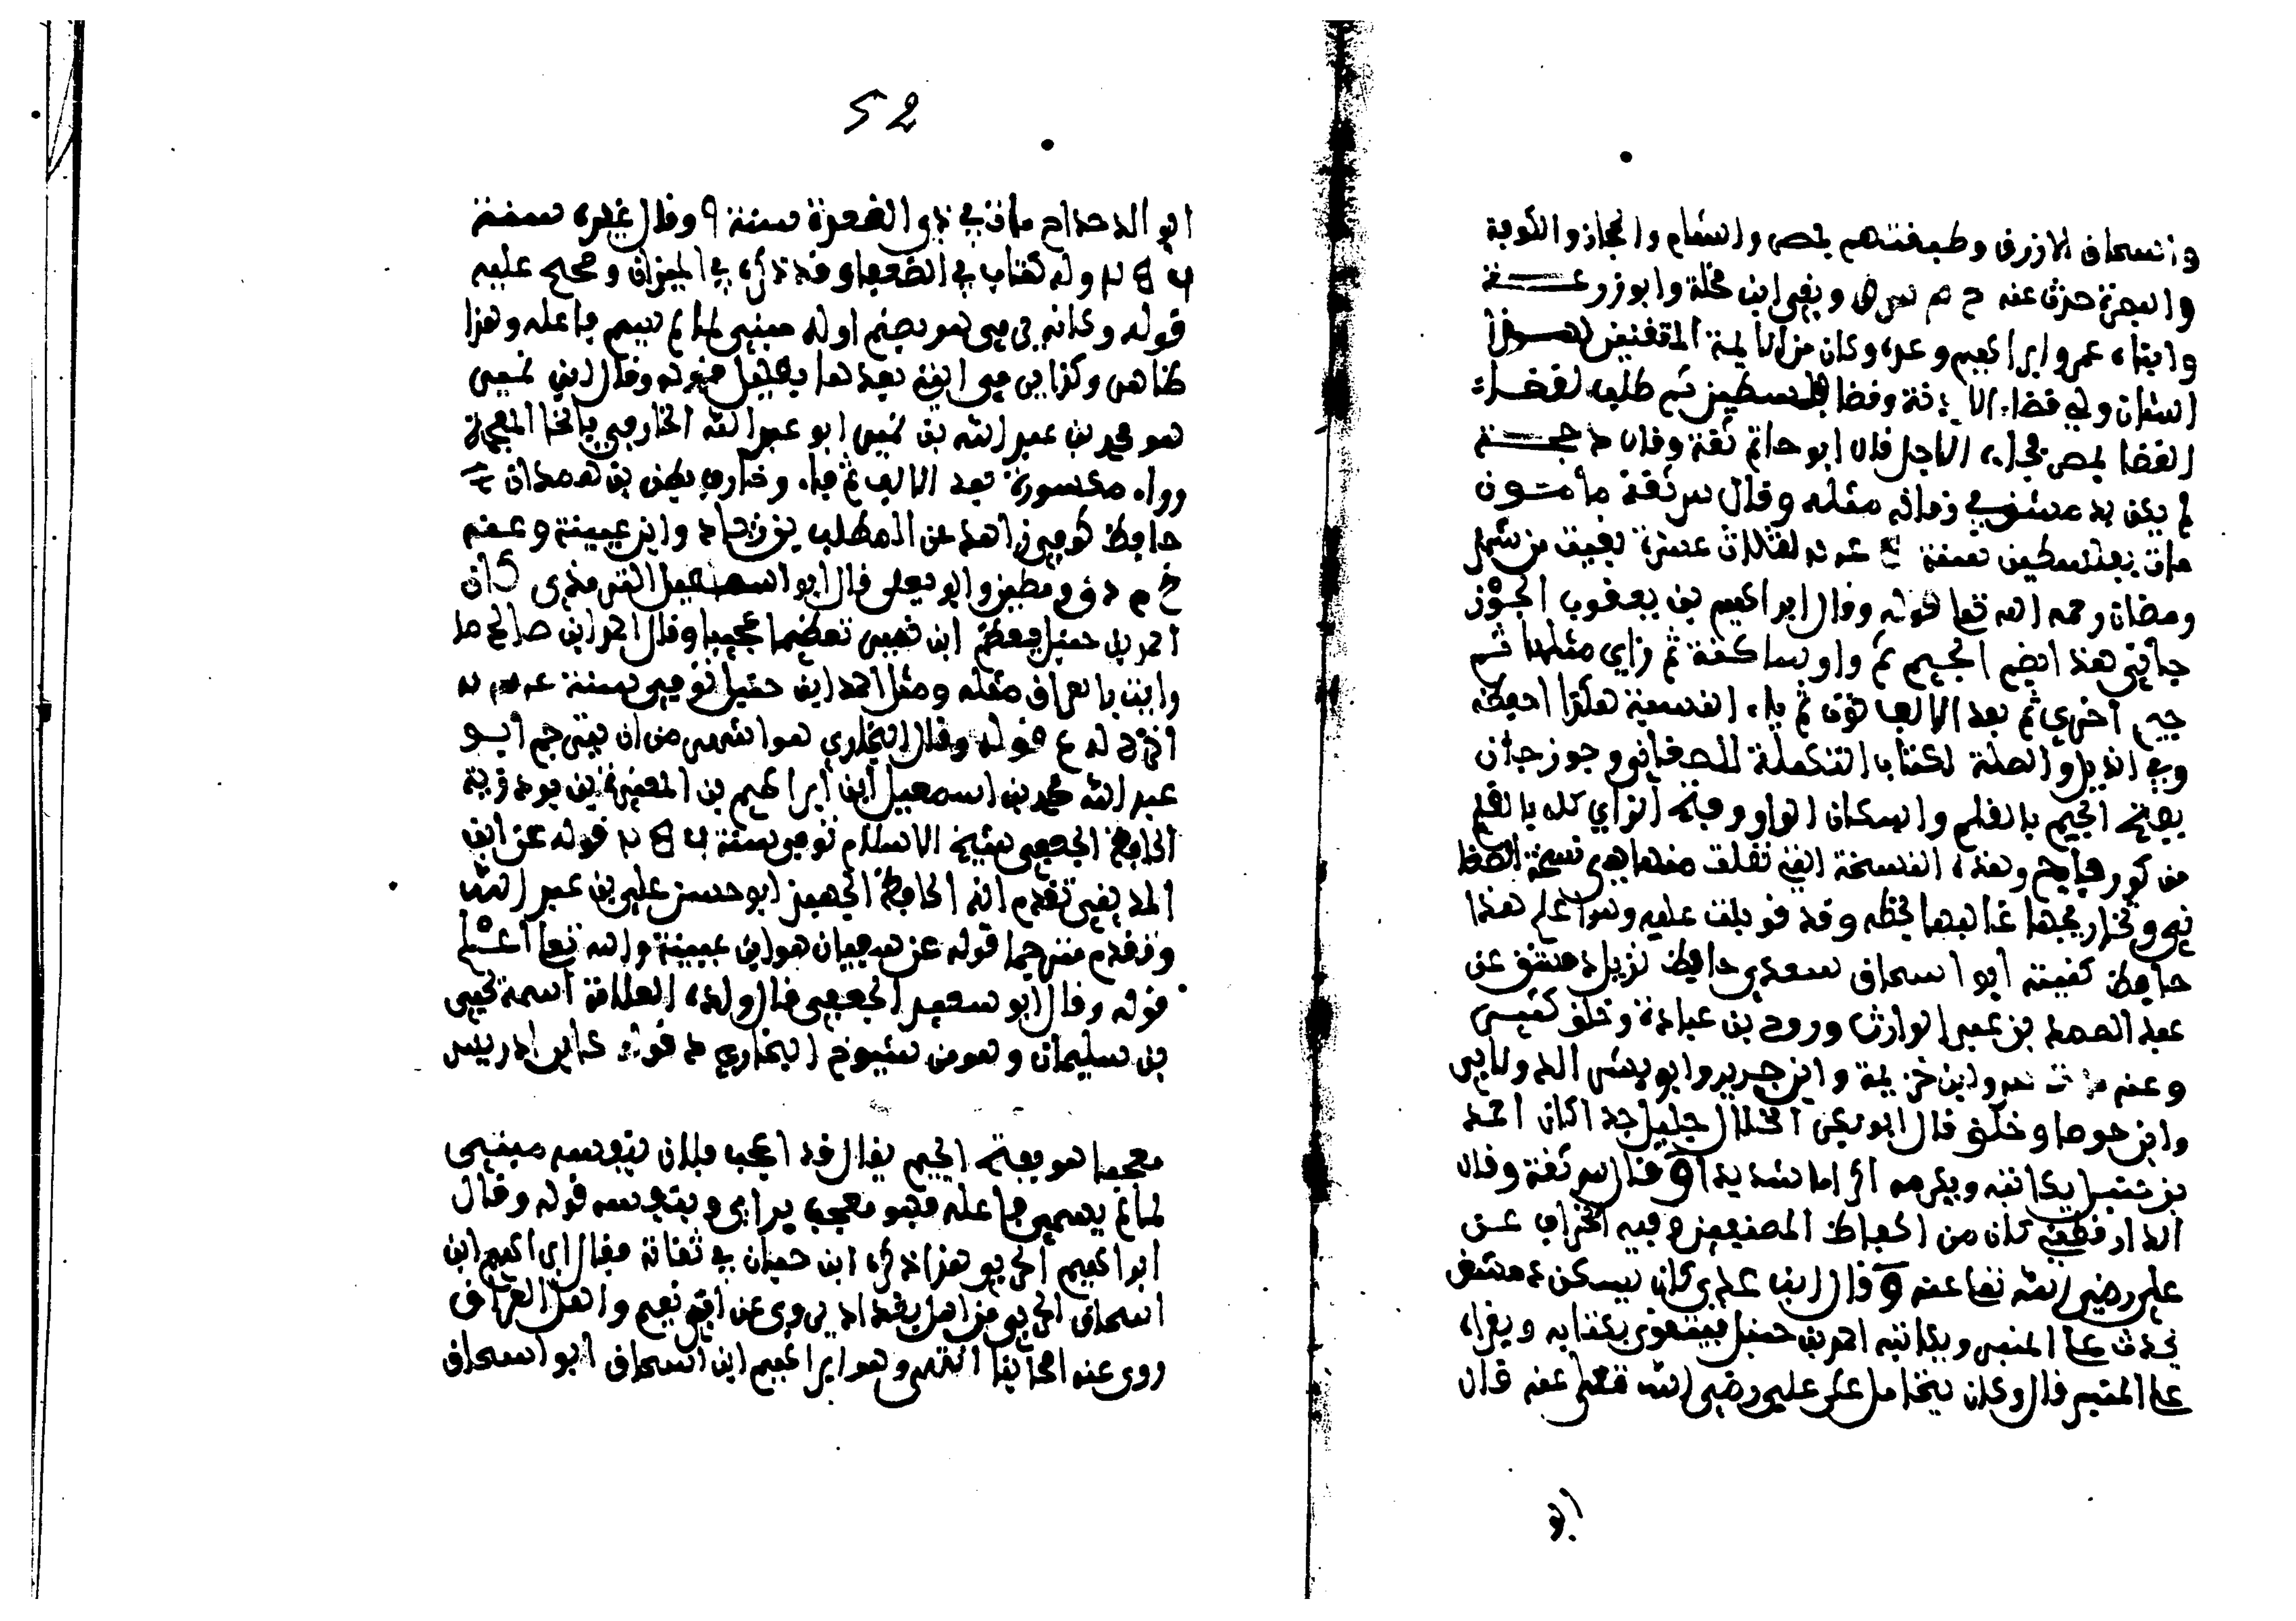 واسحاق الازرق وطبقتهم بمصر والشام والحجاز والكوفة
والبصرة حدث عنه خ م س ق وبقي ابن مخلد وابو زرعة
وابناه عمرو وابراهيم وعدة وكان من الايمة المتقنين لهذا
الشان ولي قضاء الا وقضا فلسطين ثم طلب لقضاء
القضا بمصر الاجل قال ابو حاتم ثقة وقال د حجة
لم يكن بدمشق في زمانه مثله وقال س ثقة مامون
مات بفلسطين سنة لثلاث عشرة بقيت من شهر
رمضان رحمه الله تعا قوله وقال ابراهيم بن يعقوب الجوز
جاني هذا بضم الجيم ثم واو ساكنة ثم زاي مثلها ثم
جيم اخرى ثم بعد الالف نون ثم ياء النسبة هكذا احفظه
وفي الذيل والصلة لكتاب التكملة للصغاني وجوزجان
بفتح الجيم بالقلم واسكان الواو وفتح الزاي كله بالقلم
من كور وهذه النسخة التي نقلت منها هي نسخة الصغا
ني وتخاريجها غالبها بخطه وقد قوبلت عليه وهو اعلم هذا
حافظ كنيته ابو اسحاق سعدي حافظ نزيل دمشق عن
عبد الصمد بن عبد الوارث وروح بن عبادة وخلق كثير
وعنه د ت س وابن خزيمة وابن جرير وابو بشر الدولابي
وابن جوصا وخلق قال ابو بكر الخلال جليل جدا كان احمد
بن حنبل يكاتبه ويكرمه اكراما شديدا وقال س ثقة وقال
الدارقطني كان من الحفاظ المصنفين وفيه انحراف عن
علي رضي الله تعا عنه وقال ابن عدي كان يسكن دمشق
يحدث على المنبر ويكاتبه احمد بن حنبل فيتقوى بكتابه ويقراه
على المنبر قال وكان يتحامل على علي رضي الله تعلى عنه قال
52
ابو الدحداح مات في ذي القعدة سنة 9 وقال غيره سنة
وله كتاب في الضعفا وقد ذكره في الميزان وصحح عليه
قوله وكانه يرمى هو بضم اوله مبني لما لم يسم فاعله وهذا
ظاهر وكذا يرمى اتية بعدها بقليل قوله وقال ابن نمير
هو محمد بن عبد الله بن نمير ابو عبد الله الخارفي بالخا المعجمة
وراء مكسورة بعد الالف ثم فاء وخارف بطن بن همدان
حافظ كوفي زاهد عن المطلب بن زياد وابن عيينة وعنه
خ م د ق ومطين وابو يعلى قال ابو اسمعيل الترمذي كان
احمد بن حنبل يعظم ابن نمير تعظيما عجيبا وقال احمد ابن صالح ما
رايت بالعراق مثله ومثل احمد ابن حنبل توفي سنة
اخرج له ع قوله وقال البخاري هو اشهر من ان يترجم ابو
عبد الله محمد بن اسمعيل ابن ابراهيم بن المغيرة بن بردزبة
الحافظ الجعفي شيخ الاسلام توفي سنة قوله عن ابن
المديني تقدم انه الحافظ الجهبذ ابو حسن علي بن عبد الله
وتقدم مترجما قوله عن سفيان هو ابن عيينة والله تعا اعلم
قوله وقال ابو سعيد الجعفي قال ولده العلامة اسمه يحيى
بن سليمان وهو من شيوخ البخاري قوله كابن ادريس
معجبا هو بفتح الجيم يقال قد اعجب فلان بنفسه مبني
لما لم يسمى فاعله فهو معجب برايه وبنفسه قوله وقال
ابراهيم الحربي هذا ذكره ابن حبان في ثقاته فقال ابراهيم ابن
اسحاق الحربي من اهل بغداد يروي عن ابي نعيم واهل العراق
روى عنه اصحابنا انتهى وهو ابراهيم ابن اسحاق ابو اسحاق